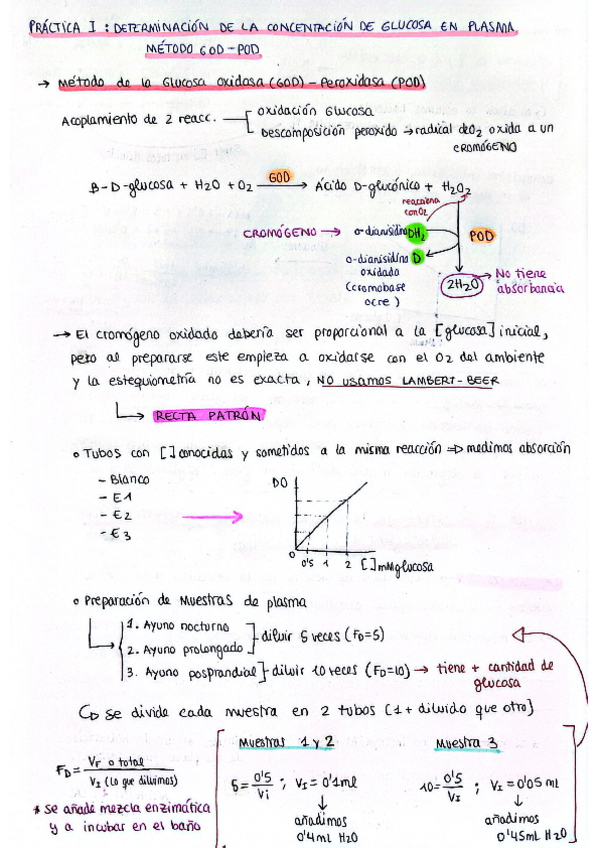 PRÁCTICA I : DETERMINACIÓN DE LA CONCENTACIÓN DE GLUCOSA EN PLASMA.
MÉTODO GOD-POD
→ Método de la Glucosa oxidasa (GOD) - Peroxidasa (POD)
Acoplamiento de 2 reacc.
oxidación Glucosa
Descomposición peroxido → radical de O2 oxida a un
CROMÓGENO
B-D-glucosa + H2O + O2 → Ácido D-glucónico + H2O2
GOD
reacciona
con O2
CROMÓGENO → o-dianisidina DH2
POD
o-dianisidina D
oxidado
(cromobase
ocre)
2H2O
→ No tiene
absorbancia
→ El cromógeno oxidado debería ser proporcional a la [glucosa] inicial,
pero al prepararse este empieza a oxidarse con el O2 del ambiente
y la estequiometría no es exacta, NO USAMOS LAMBERT-BEER
RECTA PATRÓN
• Tubos con [ ] conocidas y sometidos a la misma reacción ⇒ medimos absorción
- Blanco
- E1
- E2
- E3
DO
0 0'5 1 2 [ ] mM glucosa
• Preparación de Muestras de plasma
1. Ayuno nocturno
2. Ayuno prolongado
diluir 5 veces (FD=5)
3. Ayuno posprandial - diluir 10 veces (FD=10) → tiene + cantidad de
glucosa
↳ se divide cada muestra en 2 tubos (1 + diluido que otro)
FD = Vf o total / Vi (Lo que diluimos)
* se añade mezcla enzimática
y a incubar en el baño
Muestras 1 y 2
5 = 0'5 / Vi ; Vi = 0'1 ml
↓
añadimos
0'4 ml H2O
Muestra 3
10 = 0'5 / Vi ; Vi = 0'05 ml
↓
añadimos
0'45 mL H2O